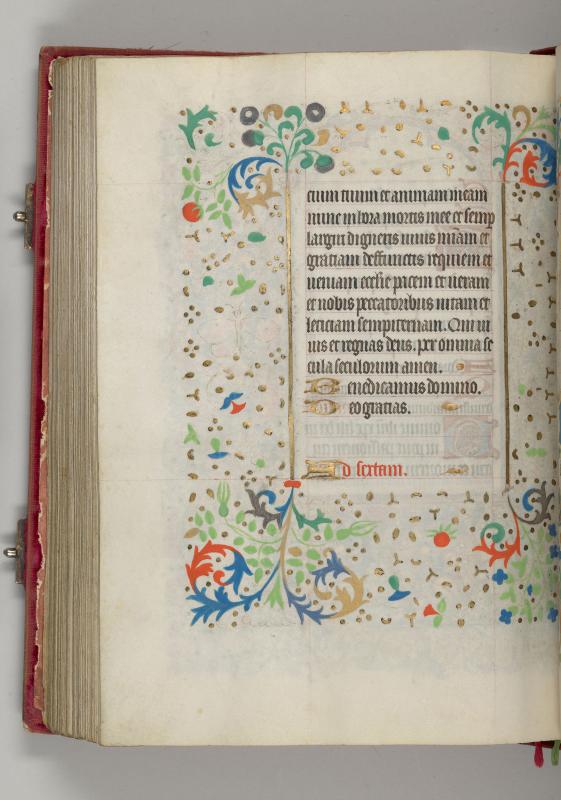 cium tuum et animam meam
nunc in hora mortis mee et semp
largiri digneris uiuis miam et
gratiam deffunctis requiem et
ueniam ecclie pacem et ueram
et nobis peccatoribus uitam et
leticiam sempiternam. Qui ui
uis et regnas deus. per omnia se
cula seculorum amen.
Benedicamus domino.
Deo gratias.
Ad sextam.